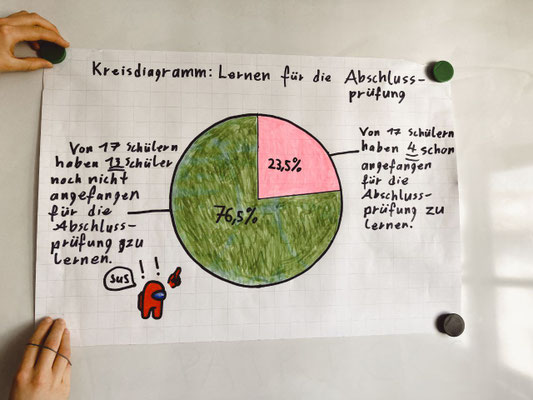 Kreisdiagramm: Lernen für die Abschluss-
prüfung
Von 17 Schülern
haben 13 Schüler
noch nicht
angefangen
für die
Abschluss-
prüfung zu
lernen.
76,5%
23,5%
Von 17 Schülern
haben 4 schon
angefangen
für die
Abschluss-
prüfung zu
lernen.
sus
! !